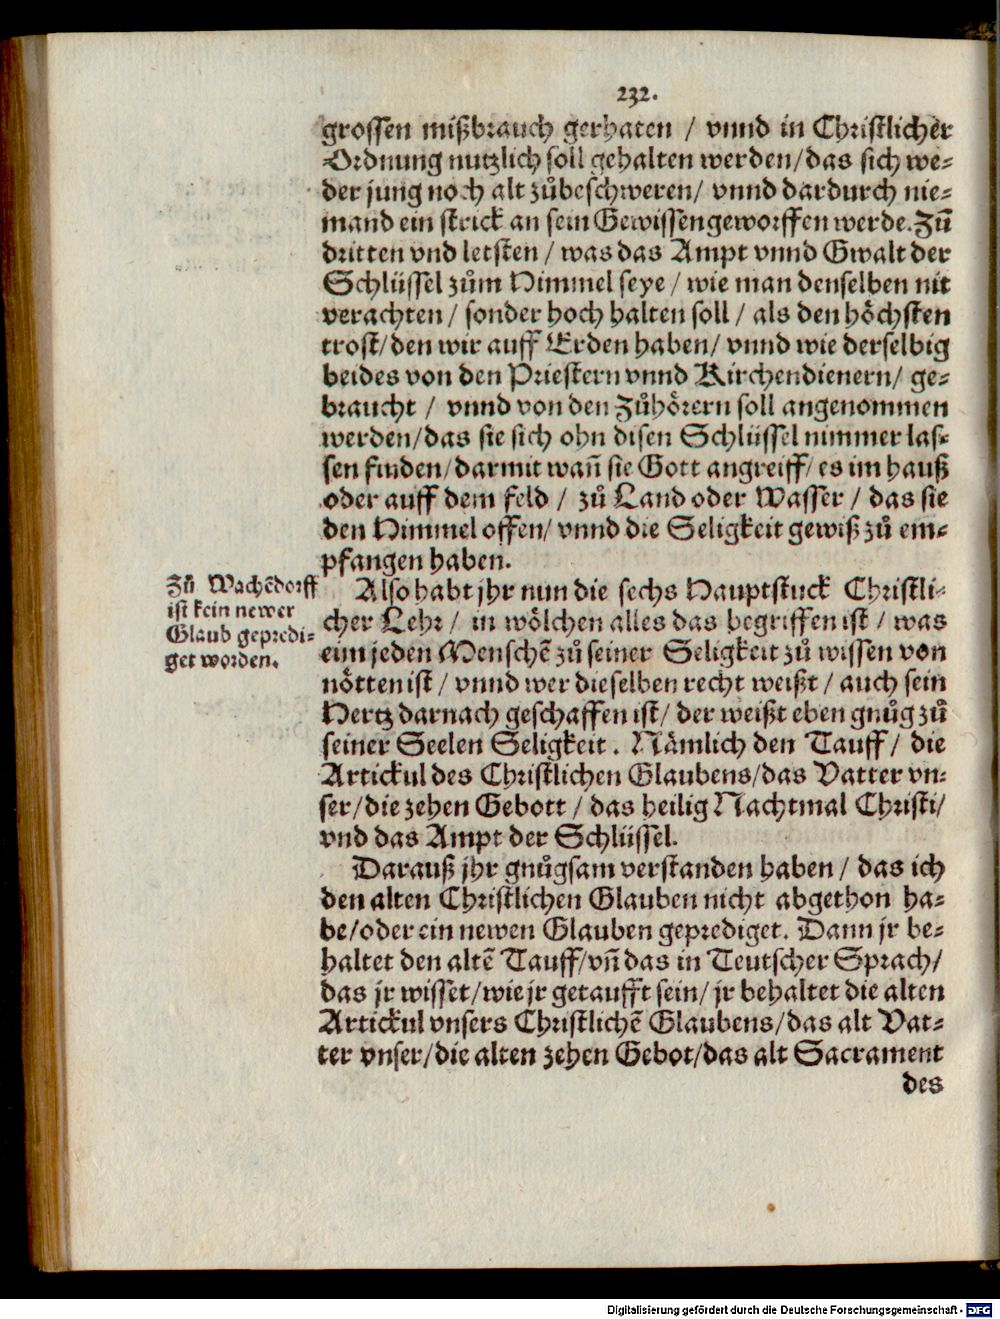 232.
grossen mißbrauch gerhaten / vnnd in Christlicher
Ordnung nutzlich soll gehalten werden/das sich we-
der jung noch alt zůbeschweren/ vnnd dardurch nie-
mand ein strick an sein Gewissen geworffen werde. Zů̄
dritten vnd letsten / was das Ampt vnnd Gwalt der
Schlüssel zům Himmel seye / wie man denselben nit
verachten / sonder hoch halten soll / als den höchsten
trost/den wir auff Erden haben/ vnnd wie derselbig
beides von den Priestern vnnd Kirchendienern/ ge-
braucht / vnnd von den Zůhörern soll angenommen
werden/das sie sich ohn disen Schlüssel nimmer las-
sen finden/darmit wañ sie Gott angreiff/es im hauß
oder auff dem feld / zů Land oder Wasser / das sie
den Himmel offen/ vnnd die Seligkeit gewiß zů em-
pfangen haben.
Zů Wachēdorff
ist kein newer
Glaub gepredi-
get worden.
Also habt jhr nun die sechs Hauptstuck Christli-
cher Lehr / in wölchen alles das begriffen ist / was
eim jeden Menschē zů seiner Seligkeit zů wissen von
nötten ist / vnnd wer dieselben recht weißt / auch sein
Hertz darnach geschaffen ist/ der weißt eben gnůg zů
seiner Seelen Seligkeit. Nämlich den Tauff/ die
Artickul des Christlichen Glaubens/das Vatter vn-
ser/die zehen Gebott / das heilig Nachtmal Christi/
vnd das Ampt der Schlüssel.
Darauß jhr gnůgsam verstanden haben / das ich
den alten Christlichen Glauben nicht abgethon ha-
be/oder ein newen Glauben geprediget. Dann jr be-
haltet den altē Tauff/vñ das in Teutscher Sprach/
das jr wisset/wie jr getaufft sein/ jr behaltet die alten
Artickul vnsers Christlichē Glaubens/das alt Vat-
ter vnser/die alten zehen Gebot/das alt Sacrament
des
Digitalisierung gefördert durch die Deutsche Forschungsgemeinschaft - DFG